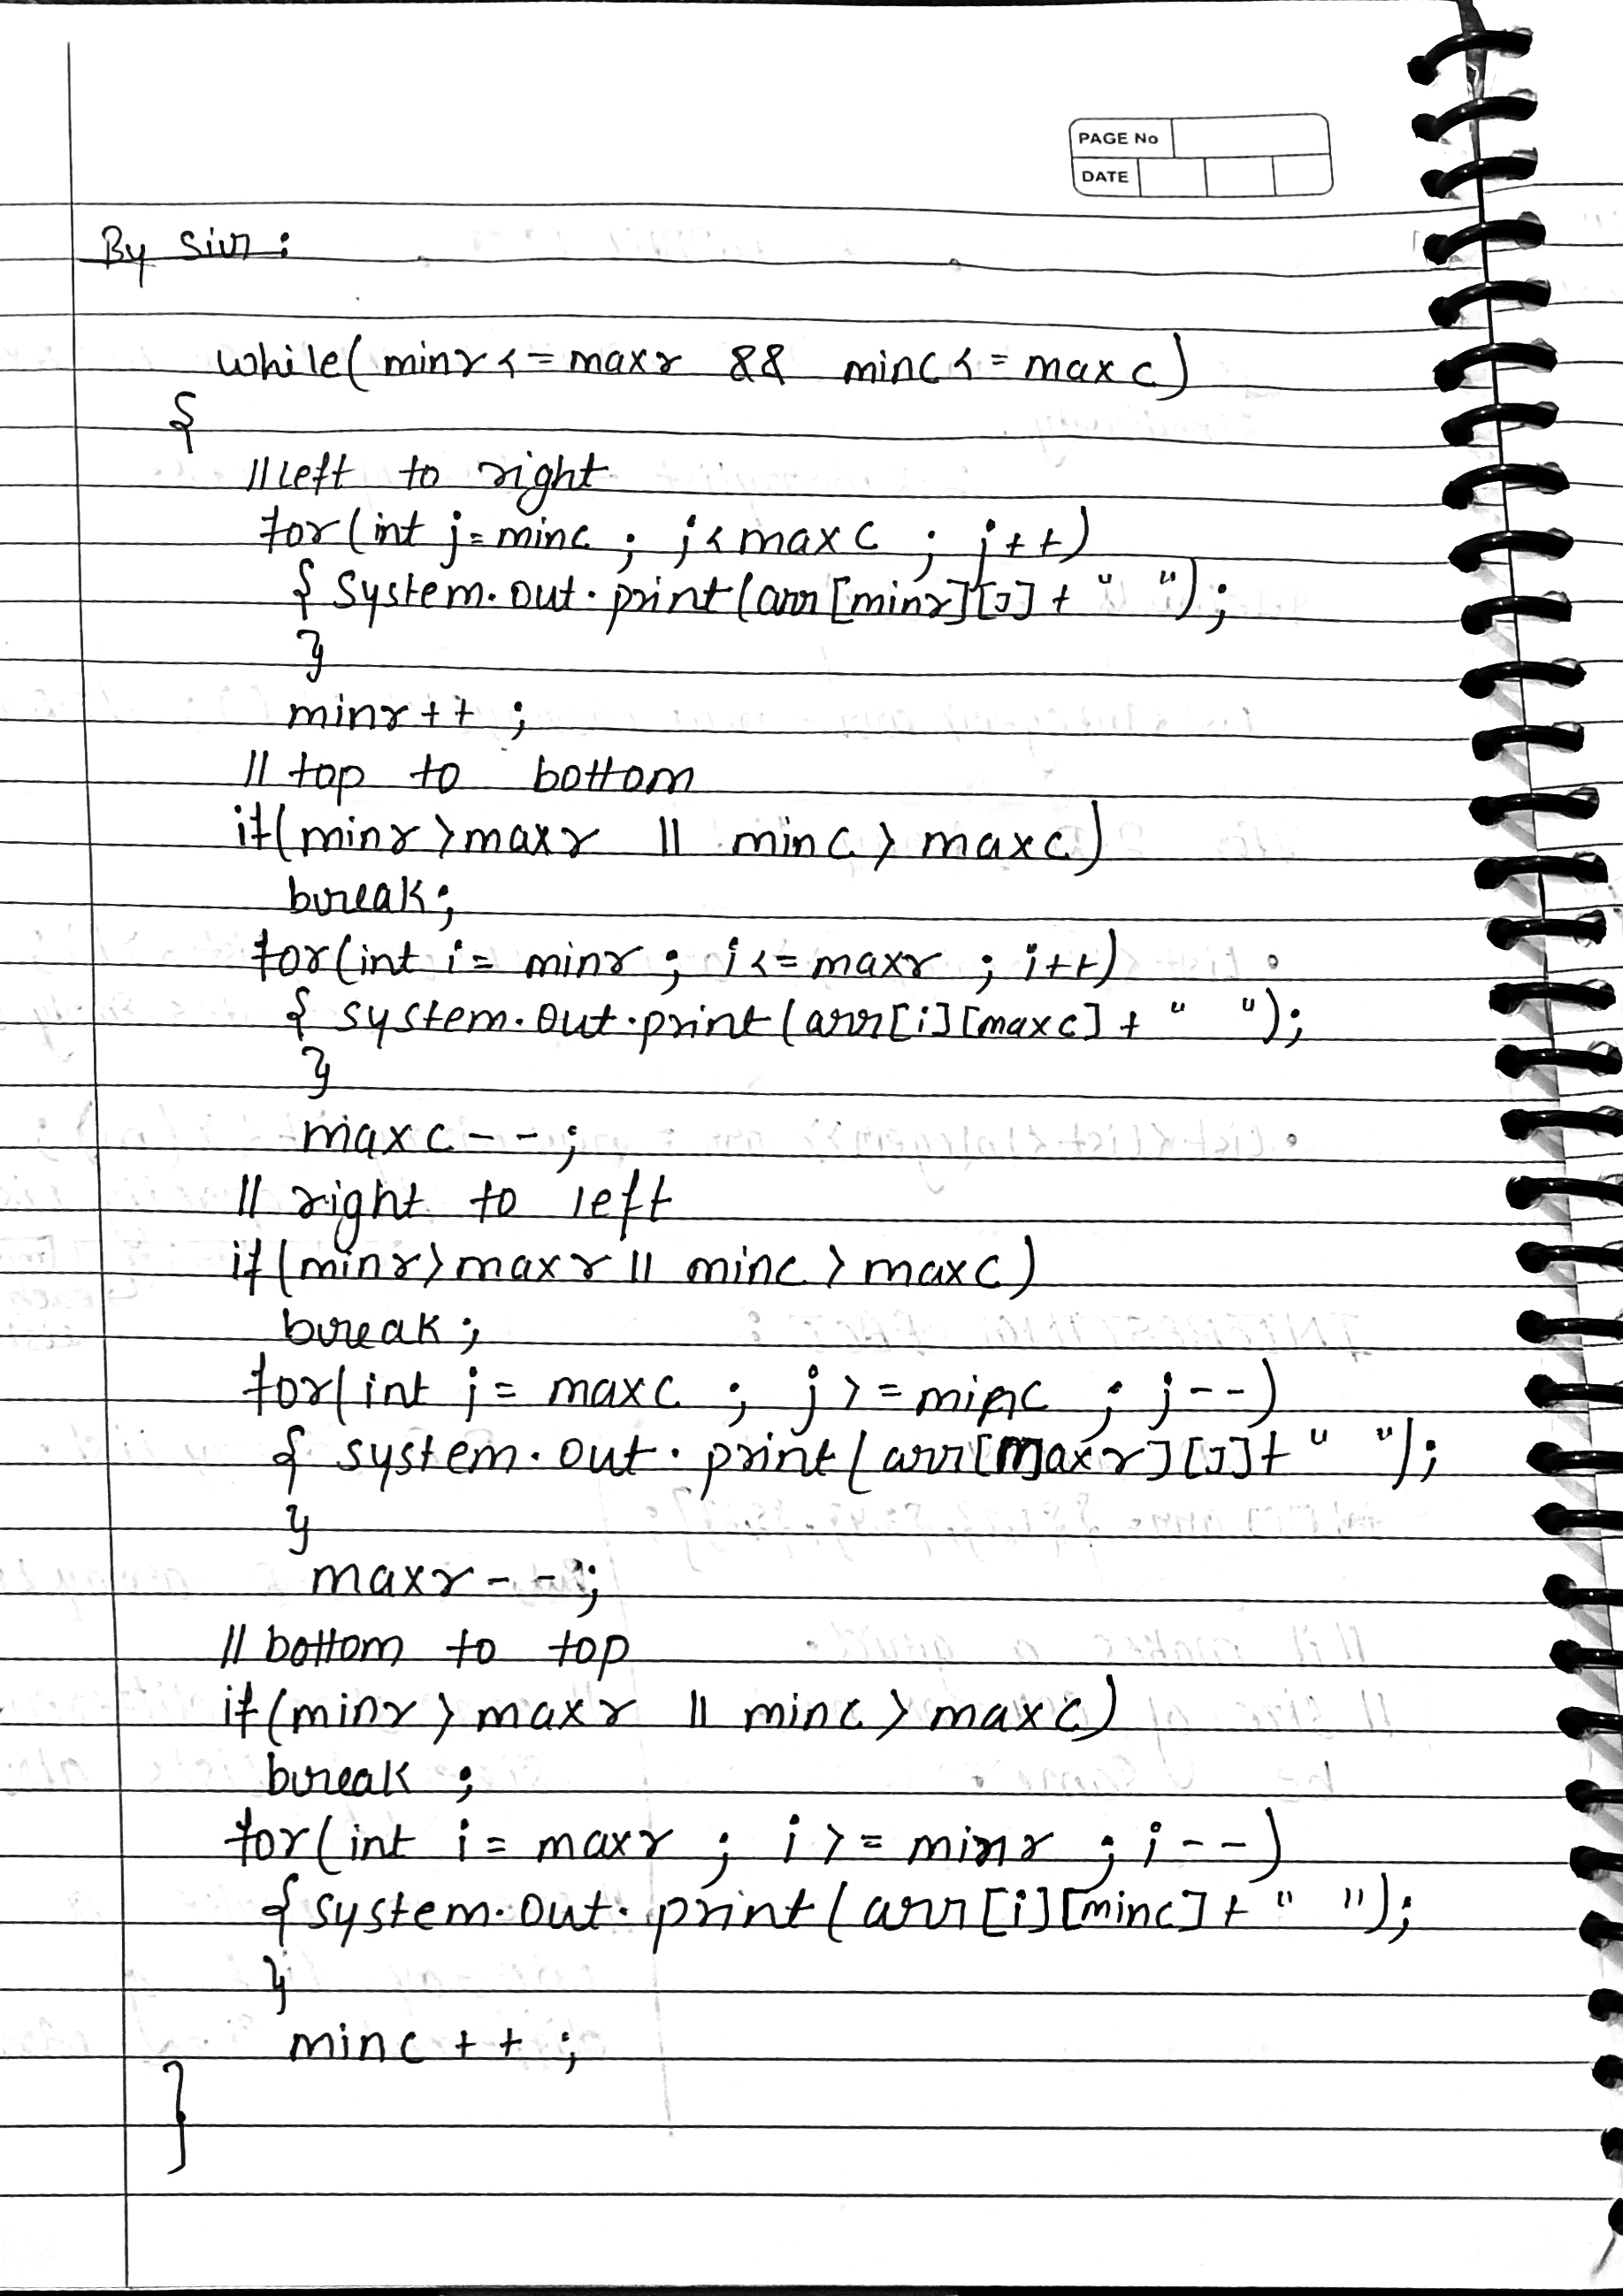 PAGE No
DATE
By Sir :
while( minr <= maxr && minc <= maxc )
{
// left to right
for (int j = minc ; j < maxc ; j++)
{ System.out.print(arr[minr][j] + " ");
}
minr++ ;
// top to bottom
if(minr > maxr || minc > maxc)
break;
for(int i = minr ; i <= maxr ; i++)
{ system.out.print(arr[i][maxc] + " ");
}
maxc-- ;
// right to left
if(minr > maxr || minc > maxc)
break ;
for(int j = maxc ; j >= minc ; j--)
{ system.out.print(arr[maxr][j] + " ");
}
maxr-- ;
// bottom to top
if(minr > maxr || minc > maxc)
break ;
for(int i = maxr ; i >= minr ; i--)
{ system.out.print(arr[i][minc] + " ");
}
minc++ ;
}